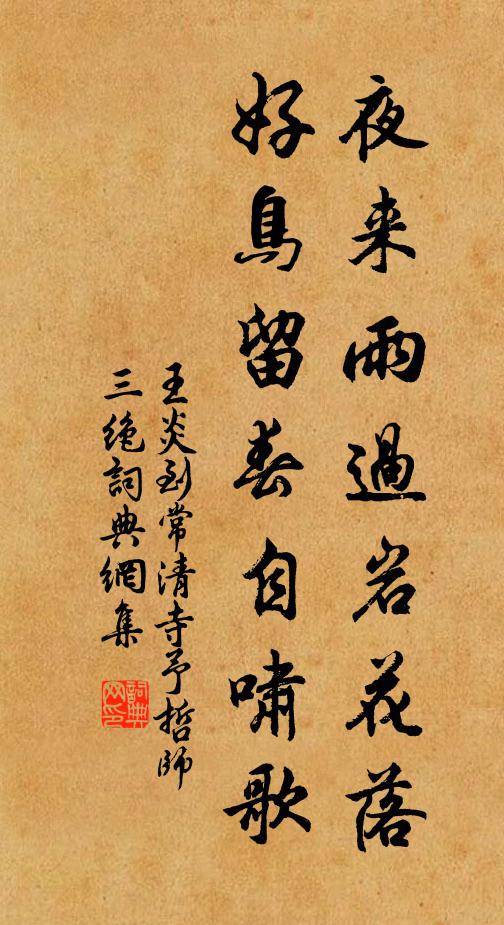 夜来雨過岩花落
好鳥留春自嘯歌
王炎到常清寺予哲師
三绝詞典網集
詞典
网印